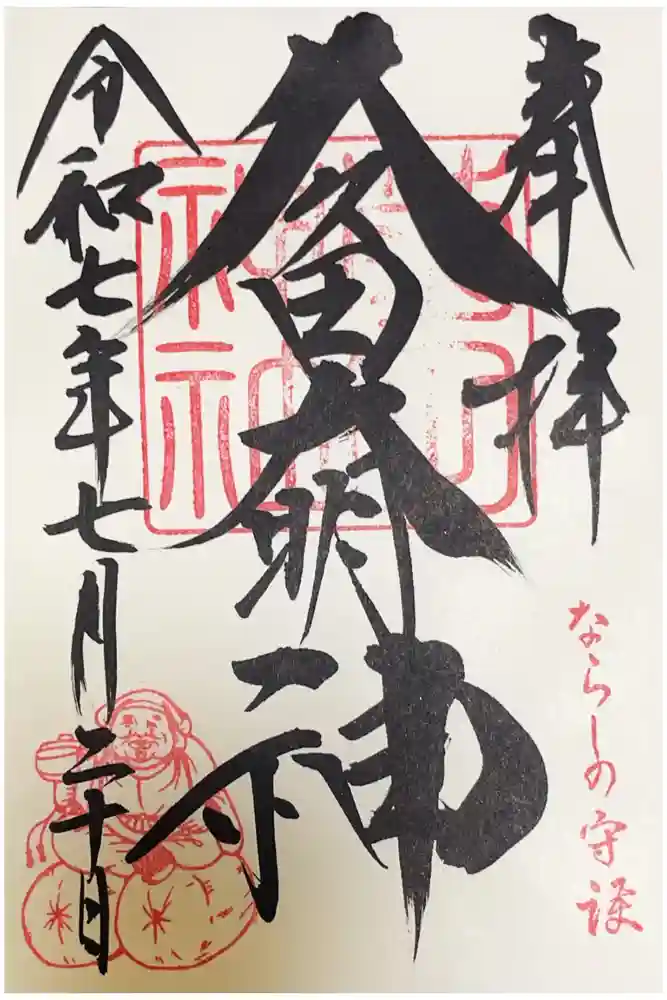 奉拝
ならしの守護
久久田大明神
令和七年七月二十日